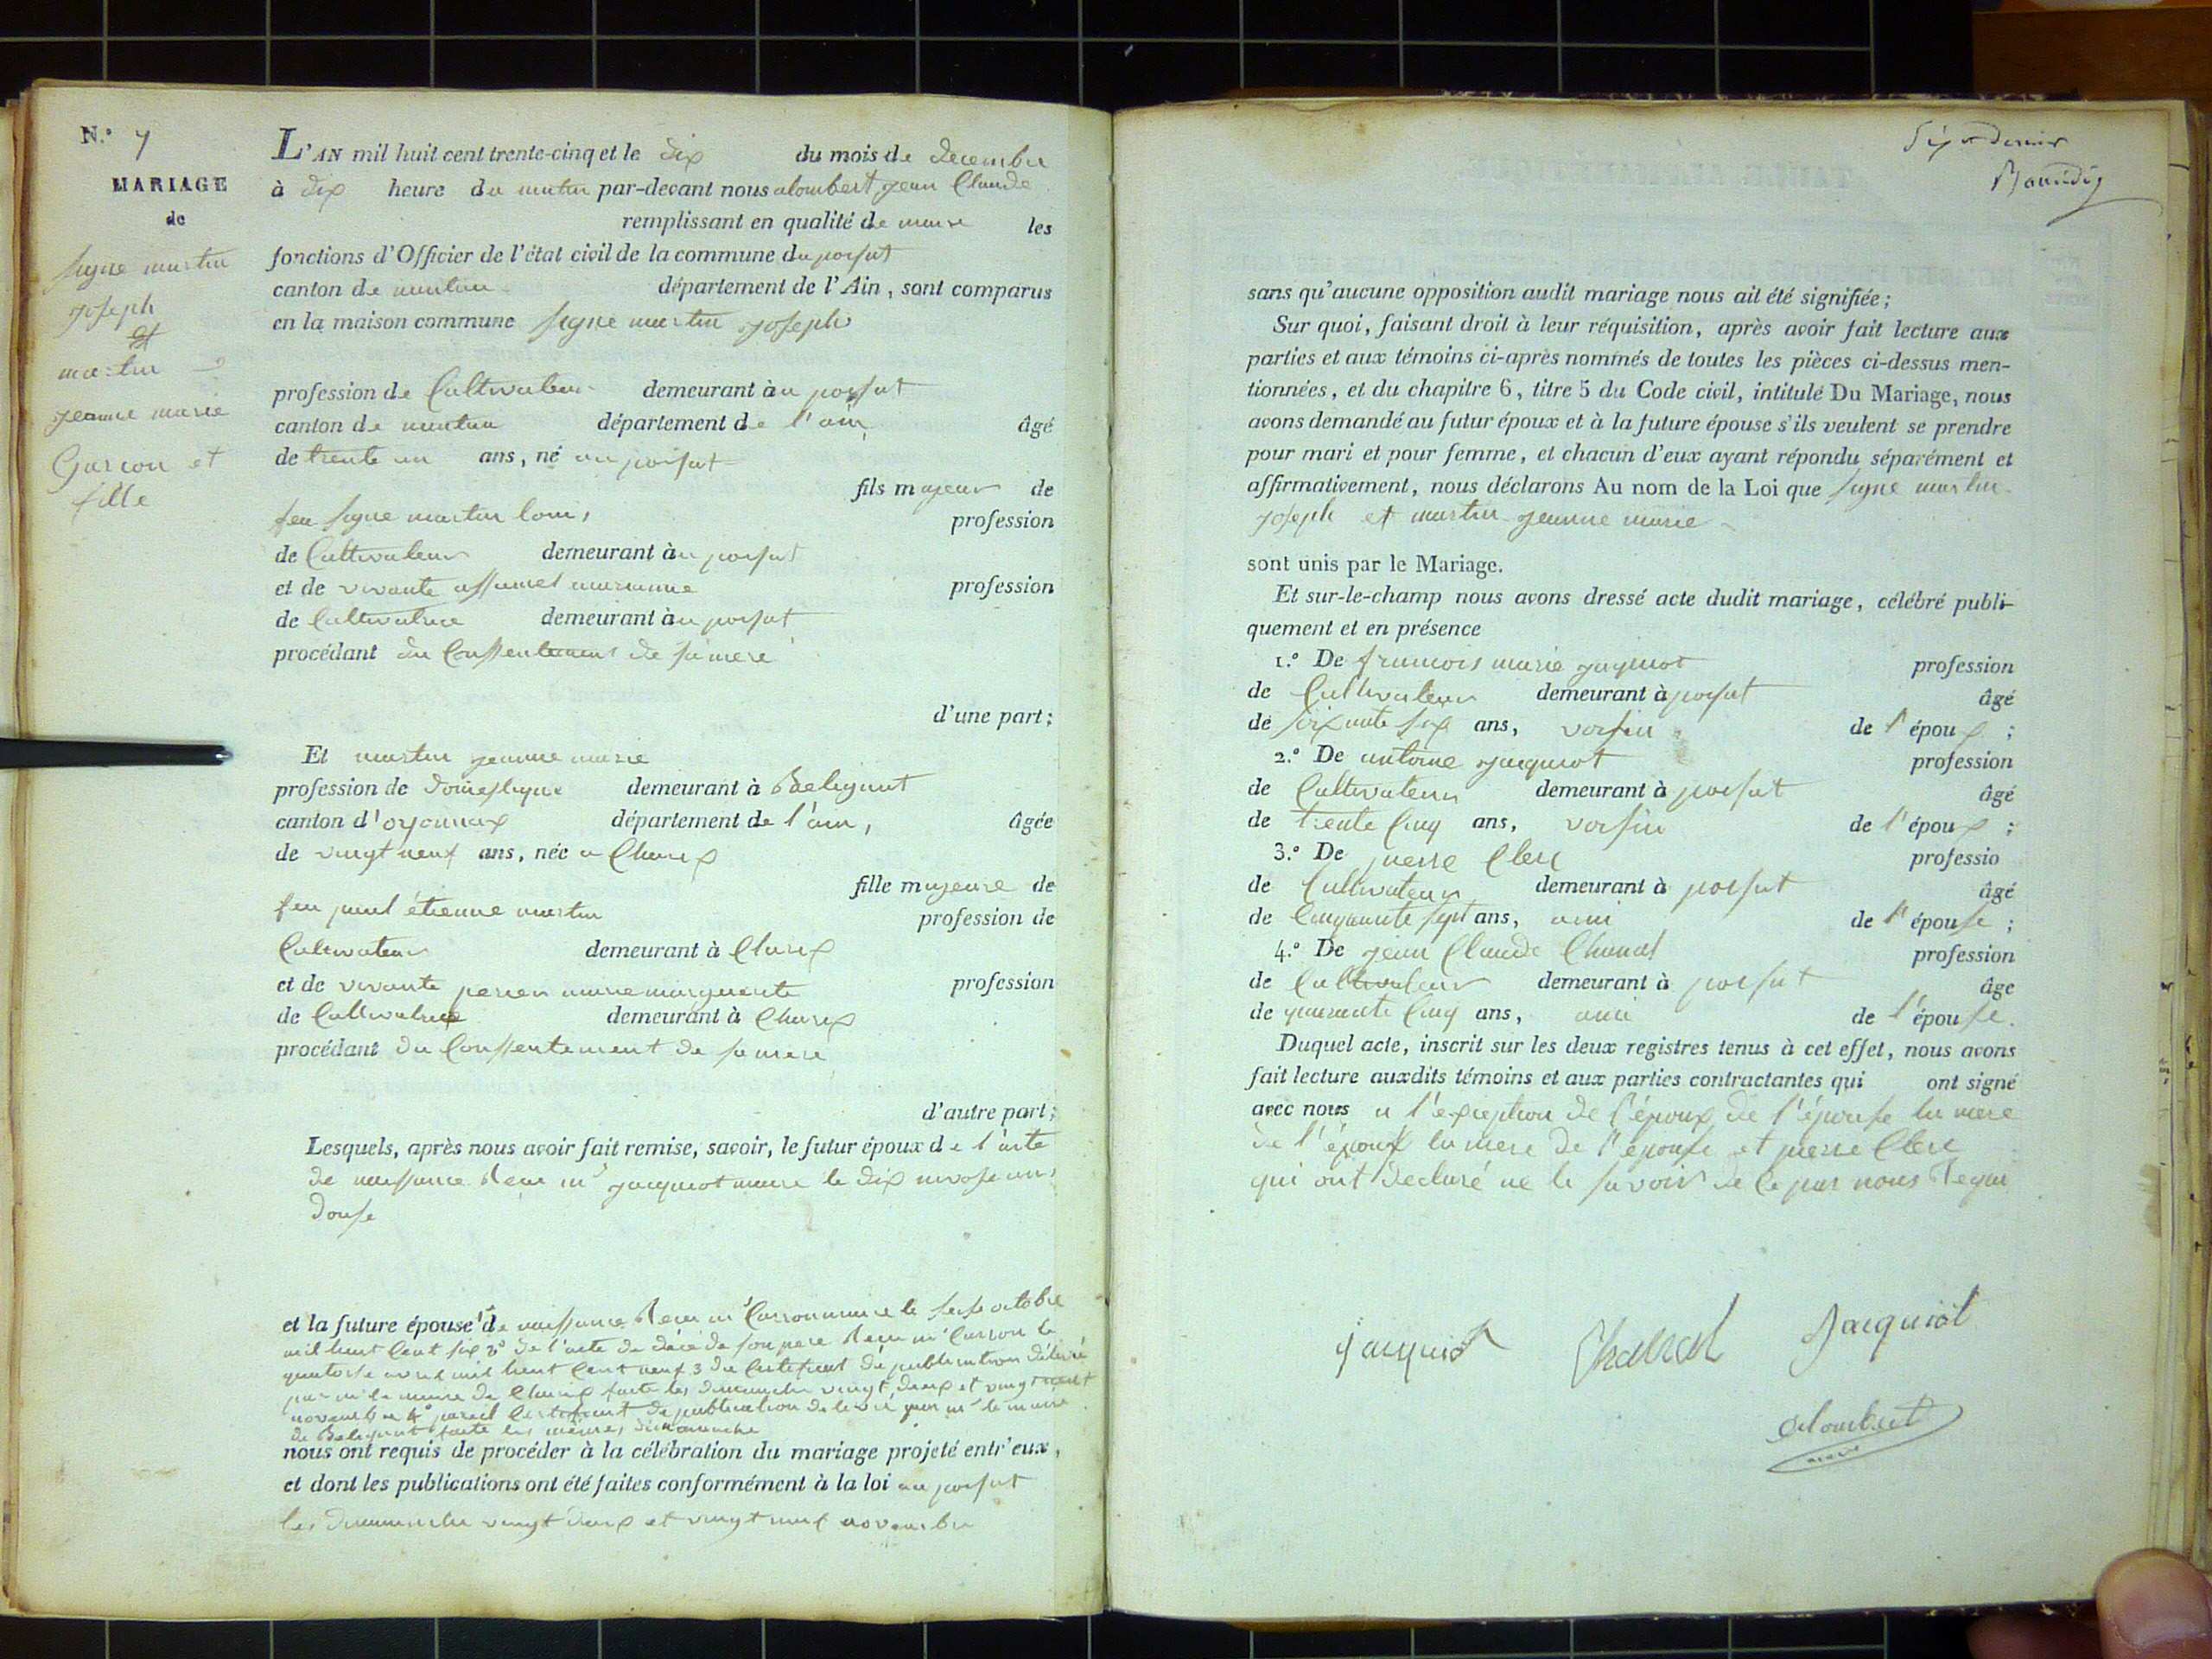 N.º 7
MARIAGE
de
Signe martin
joseph
et
martin
jeanne marie
Garcon et
fille
L'AN mil huit cent trente-cinq et le dix du mois de decembre
à dix heure du matin par-devant nous alombert jean Claude
remplissant en qualité de maire les
fonctions d'Officier de l'état civil de la commune du poisat
canton de nantua département de l'Ain, sont comparus
en la maison commune Signe martin joseph
profession de Cultivateur demeurant àu poisat
canton de nantua département de l'ain âgé
de trente un ans, né au poisat
fils majeur de
feu Signe martin louis profession
de Cultivateur demeurant àu poisat
et de vivante assumel marianne profession
de Cultivatrice demeurant àu poisat
procédant du Conssentement de sa mere
d'une part;
Et martin jeanne marie
profession de domestique demeurant à Belignat
canton d'oyonnax département de l'ain, âgée
de vingt neuf ans, née a Charix
fille majeure de
feu paul étienne martin profession de
Cultivateur demeurant à Charix
et de vivante perier marie marguerite profession
de Cultivatrice demeurant à Charix
procédant du Conssentement de sa mere
d'autre part;
Lesquels, après nous avoir fait remise, savoir, le futur époux de l'acte
de naissance Recu mr jacquiot maire le dix nivose an
douse
et la future épouse de naissance Recu mr Carron maire le seise octobre
mil huit Cent six 2º de l'acte de décé de son pere Recu mr Carron le
quatorse avril mil huit Cent neuf 3 du Certificat de publication délivré
par mr le maire de Charix faite les dimanche vingt deux et vingt neuf
novembre 4º pareil Certificat de publication delivré par mr le maire
de Belignat faite les mêmes dimanche
nous ont requis de procéder à la célébration du mariage projeté entr'eux,
et dont les publications ont été faites conformément à la loi au poisat
les dimanche vingt deux et vingt neuf novembre
sans qu'aucune opposition audit mariage nous ait été signifiée;
Sur quoi, faisant droit à leur réquisition, après avoir fait lecture aux
parties et aux témoins ci-après nommés de toutes les pièces ci-dessus men-
tionnées, et du chapitre 6, titre 5 du Code civil, intitulé Du Mariage, nous
avons demandé au futur époux et à la future épouse s'ils veulent se prendre
pour mari et pour femme, et chacun d'eux ayant répondu séparément et
affirmativement, nous déclarons Au nom de la Loi que Signe martin
joseph et martin jeanne marie
sont unis par le Mariage.
Et sur-le-champ nous avons dressé acte dudit mariage, célébré publi-
quement et en présence
1.º De francois marie jaquiot profession
de Cultivateur demeurant à poisat âgé
de soixante six ans, voisin de l'époux ;
2.º De antoine jacquiot profession
de Cultivateur demeurant à poisat âgé
de trente Cinq ans, voisin de l'époux ;
3.º De pierre Clerc professio
de Cultivateur demeurant à poisat âgé
de Cinquante sept ans, ami de l'épouse ;
4.º De jean Claude Chanal profession
de Cultivateur demeurant à poisat âge
de quarante Cinq ans, ami de l'épouse.
Duquel acte, inscrit sur les deux registres tenus à cet effet, nous avons
fait lecture auxdits témoins et aux parties contractantes qui ont signé
avec nous a l'exception de l'époux de l'épouse la mere
de l'époux la mere de l'épouse et pierre Clerc
qui ont declaré ne le savoir de Ce par nous Requi
jacquiot Chanal Jacquiot
alombert
maire